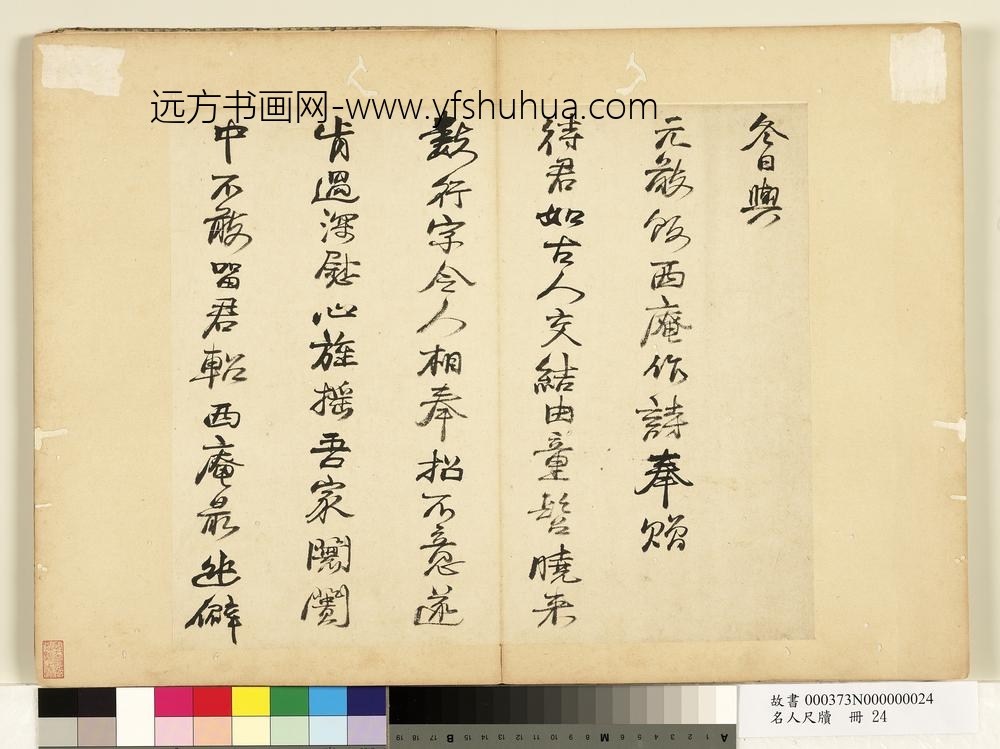 远方书画网-www.yfshuhua.com
冬日與
元敬飯西庵作詩奉贈
待君如古人交結由童髫曉来
數行字令人相奉招不意遂
肯過深慰心旌搖吾家闤闠
中不敢留君軺西庵最迚僻
故書 000373N000000024
名人尺牘 冊 24